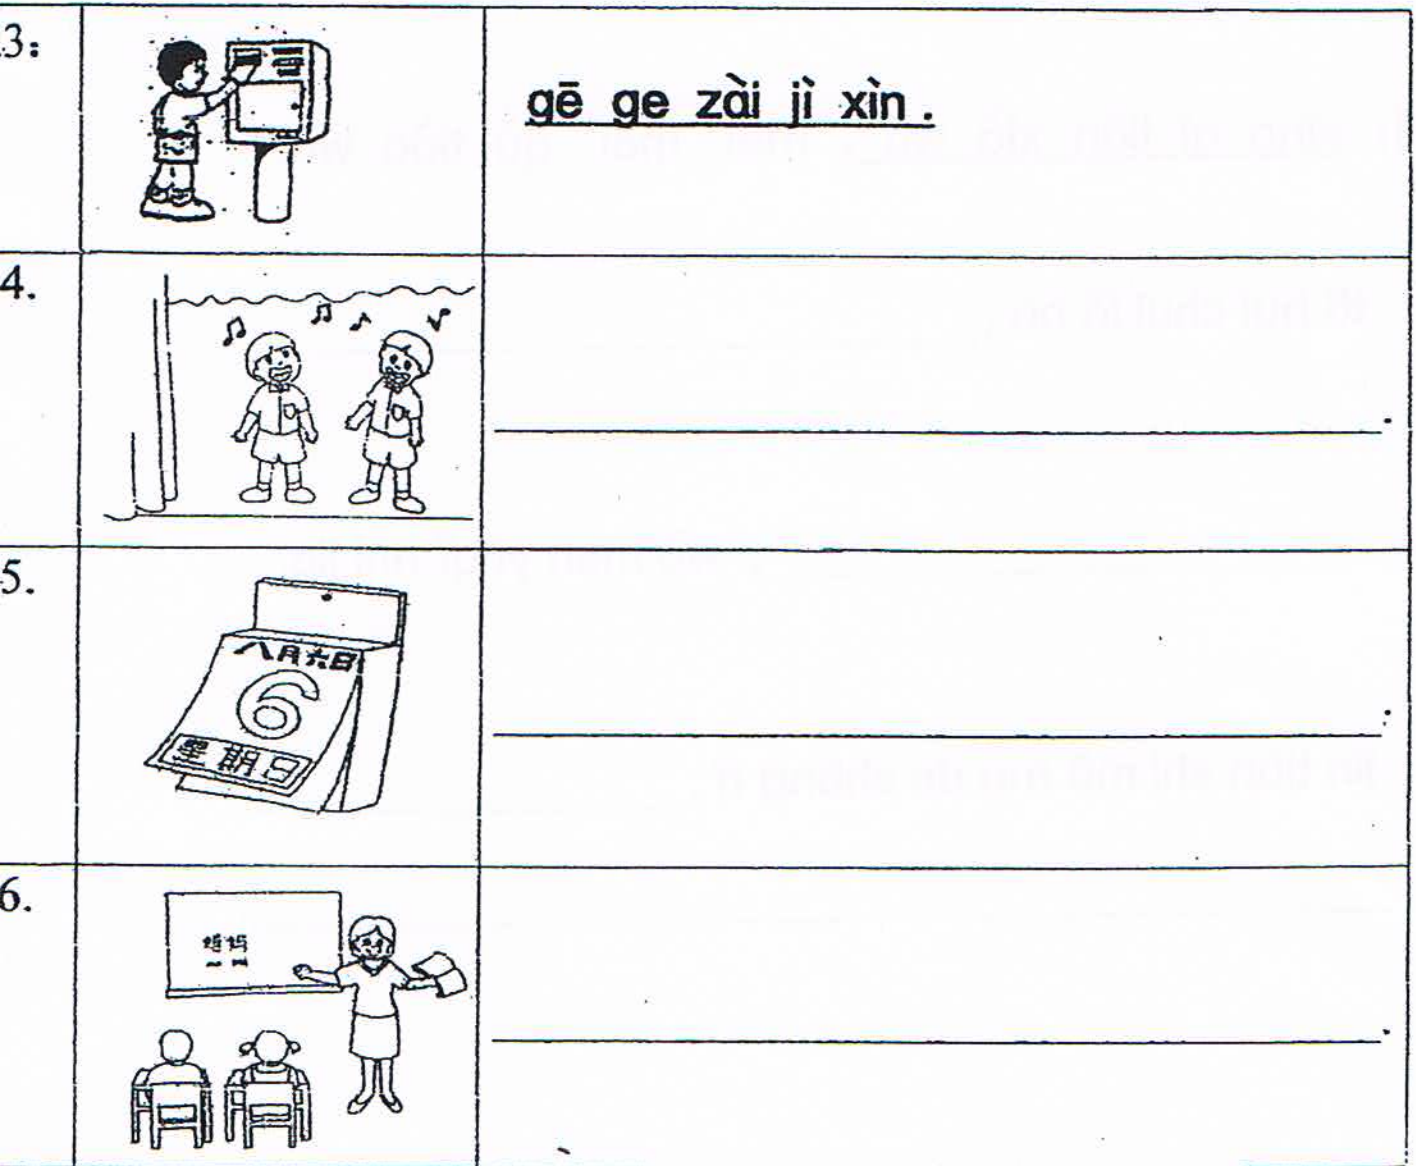 3:
gē ge zài jì xìn .
4.
5.
八月六日
6
星期日
6.
妈妈